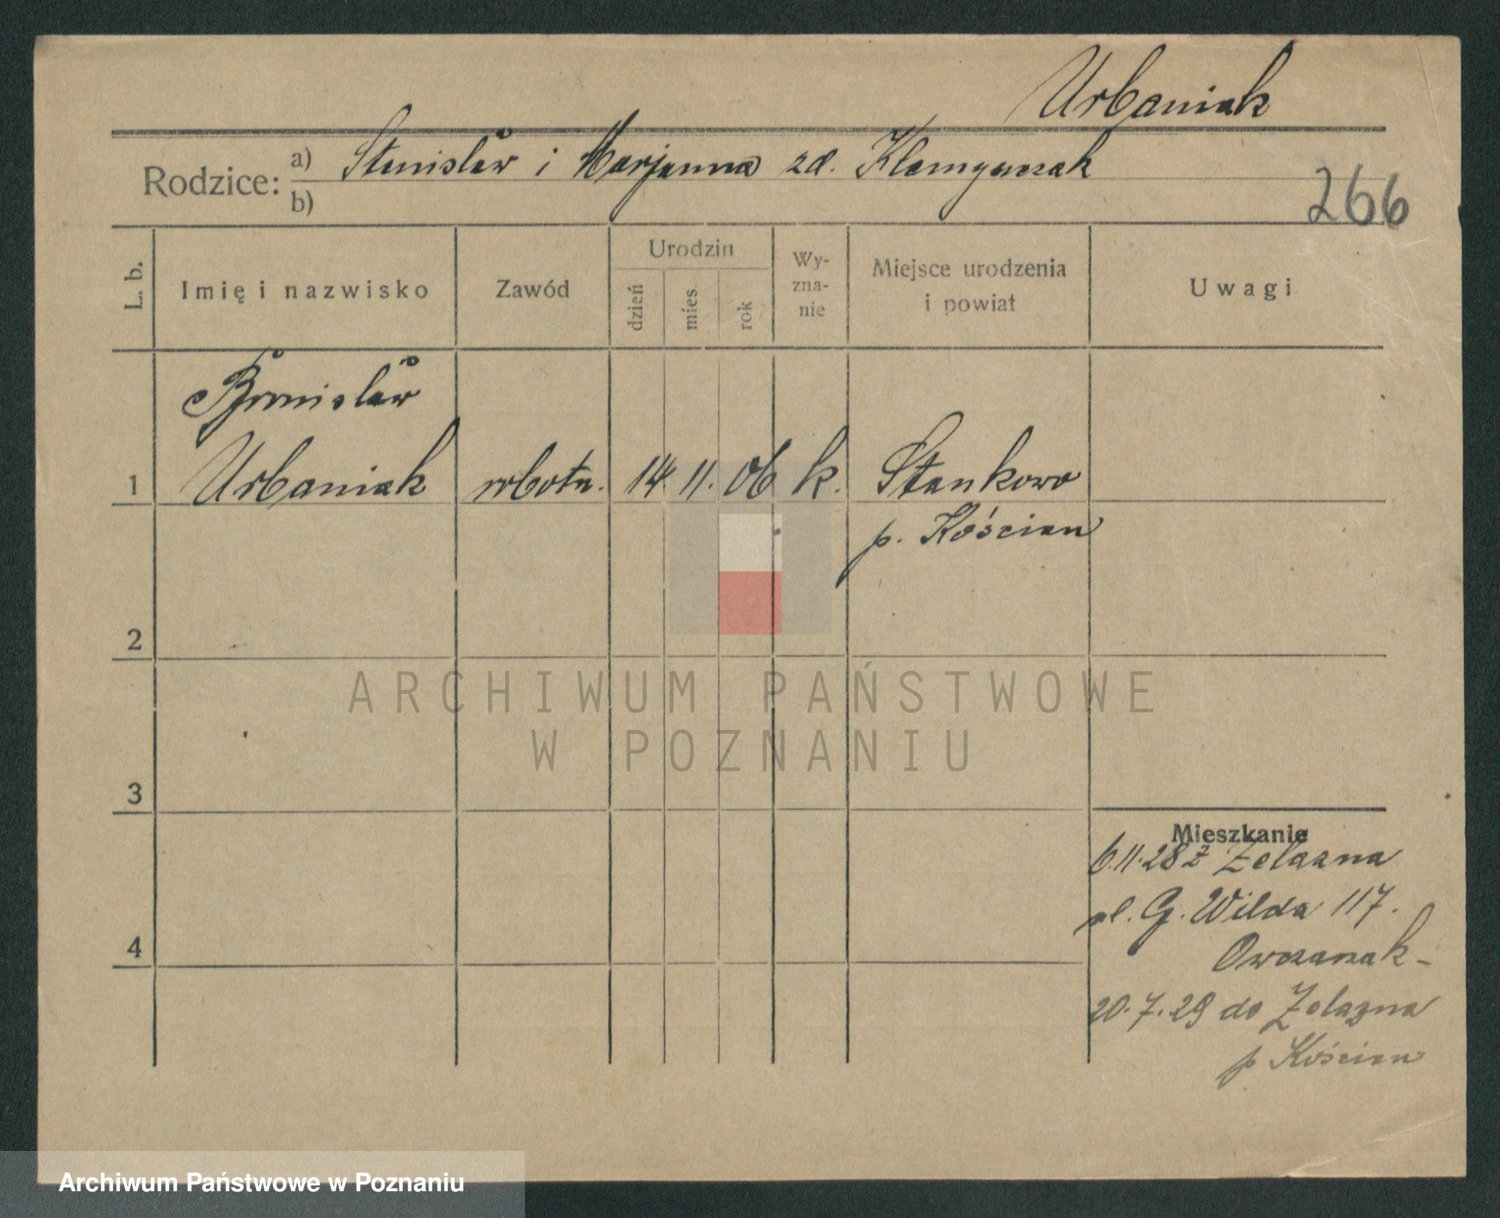 Urbaniak
Rodzice: a) Stanisław i Marjanna zd.
b)
266
L. b.
Imię i nazwisko
Zawód
Urodzin
dzień
mies.
rok
Wy-
zna-
nie
Miejsce urodzenia
i powiat
Uwagi
Bronisław
1 Urbaniak robotn. 14. 11. 06 k. Stankowo
p. Kościan
2
3
4
Mieszkanie
6.11.28 z Żelazna
ul. G. Wilda 117.
Owczarzak-
20.7.29 do Żelazna
p Kościan
ARCHIWUM PAŃSTWOWE
W POZNANIU
Archiwum Państwowe w Poznaniu